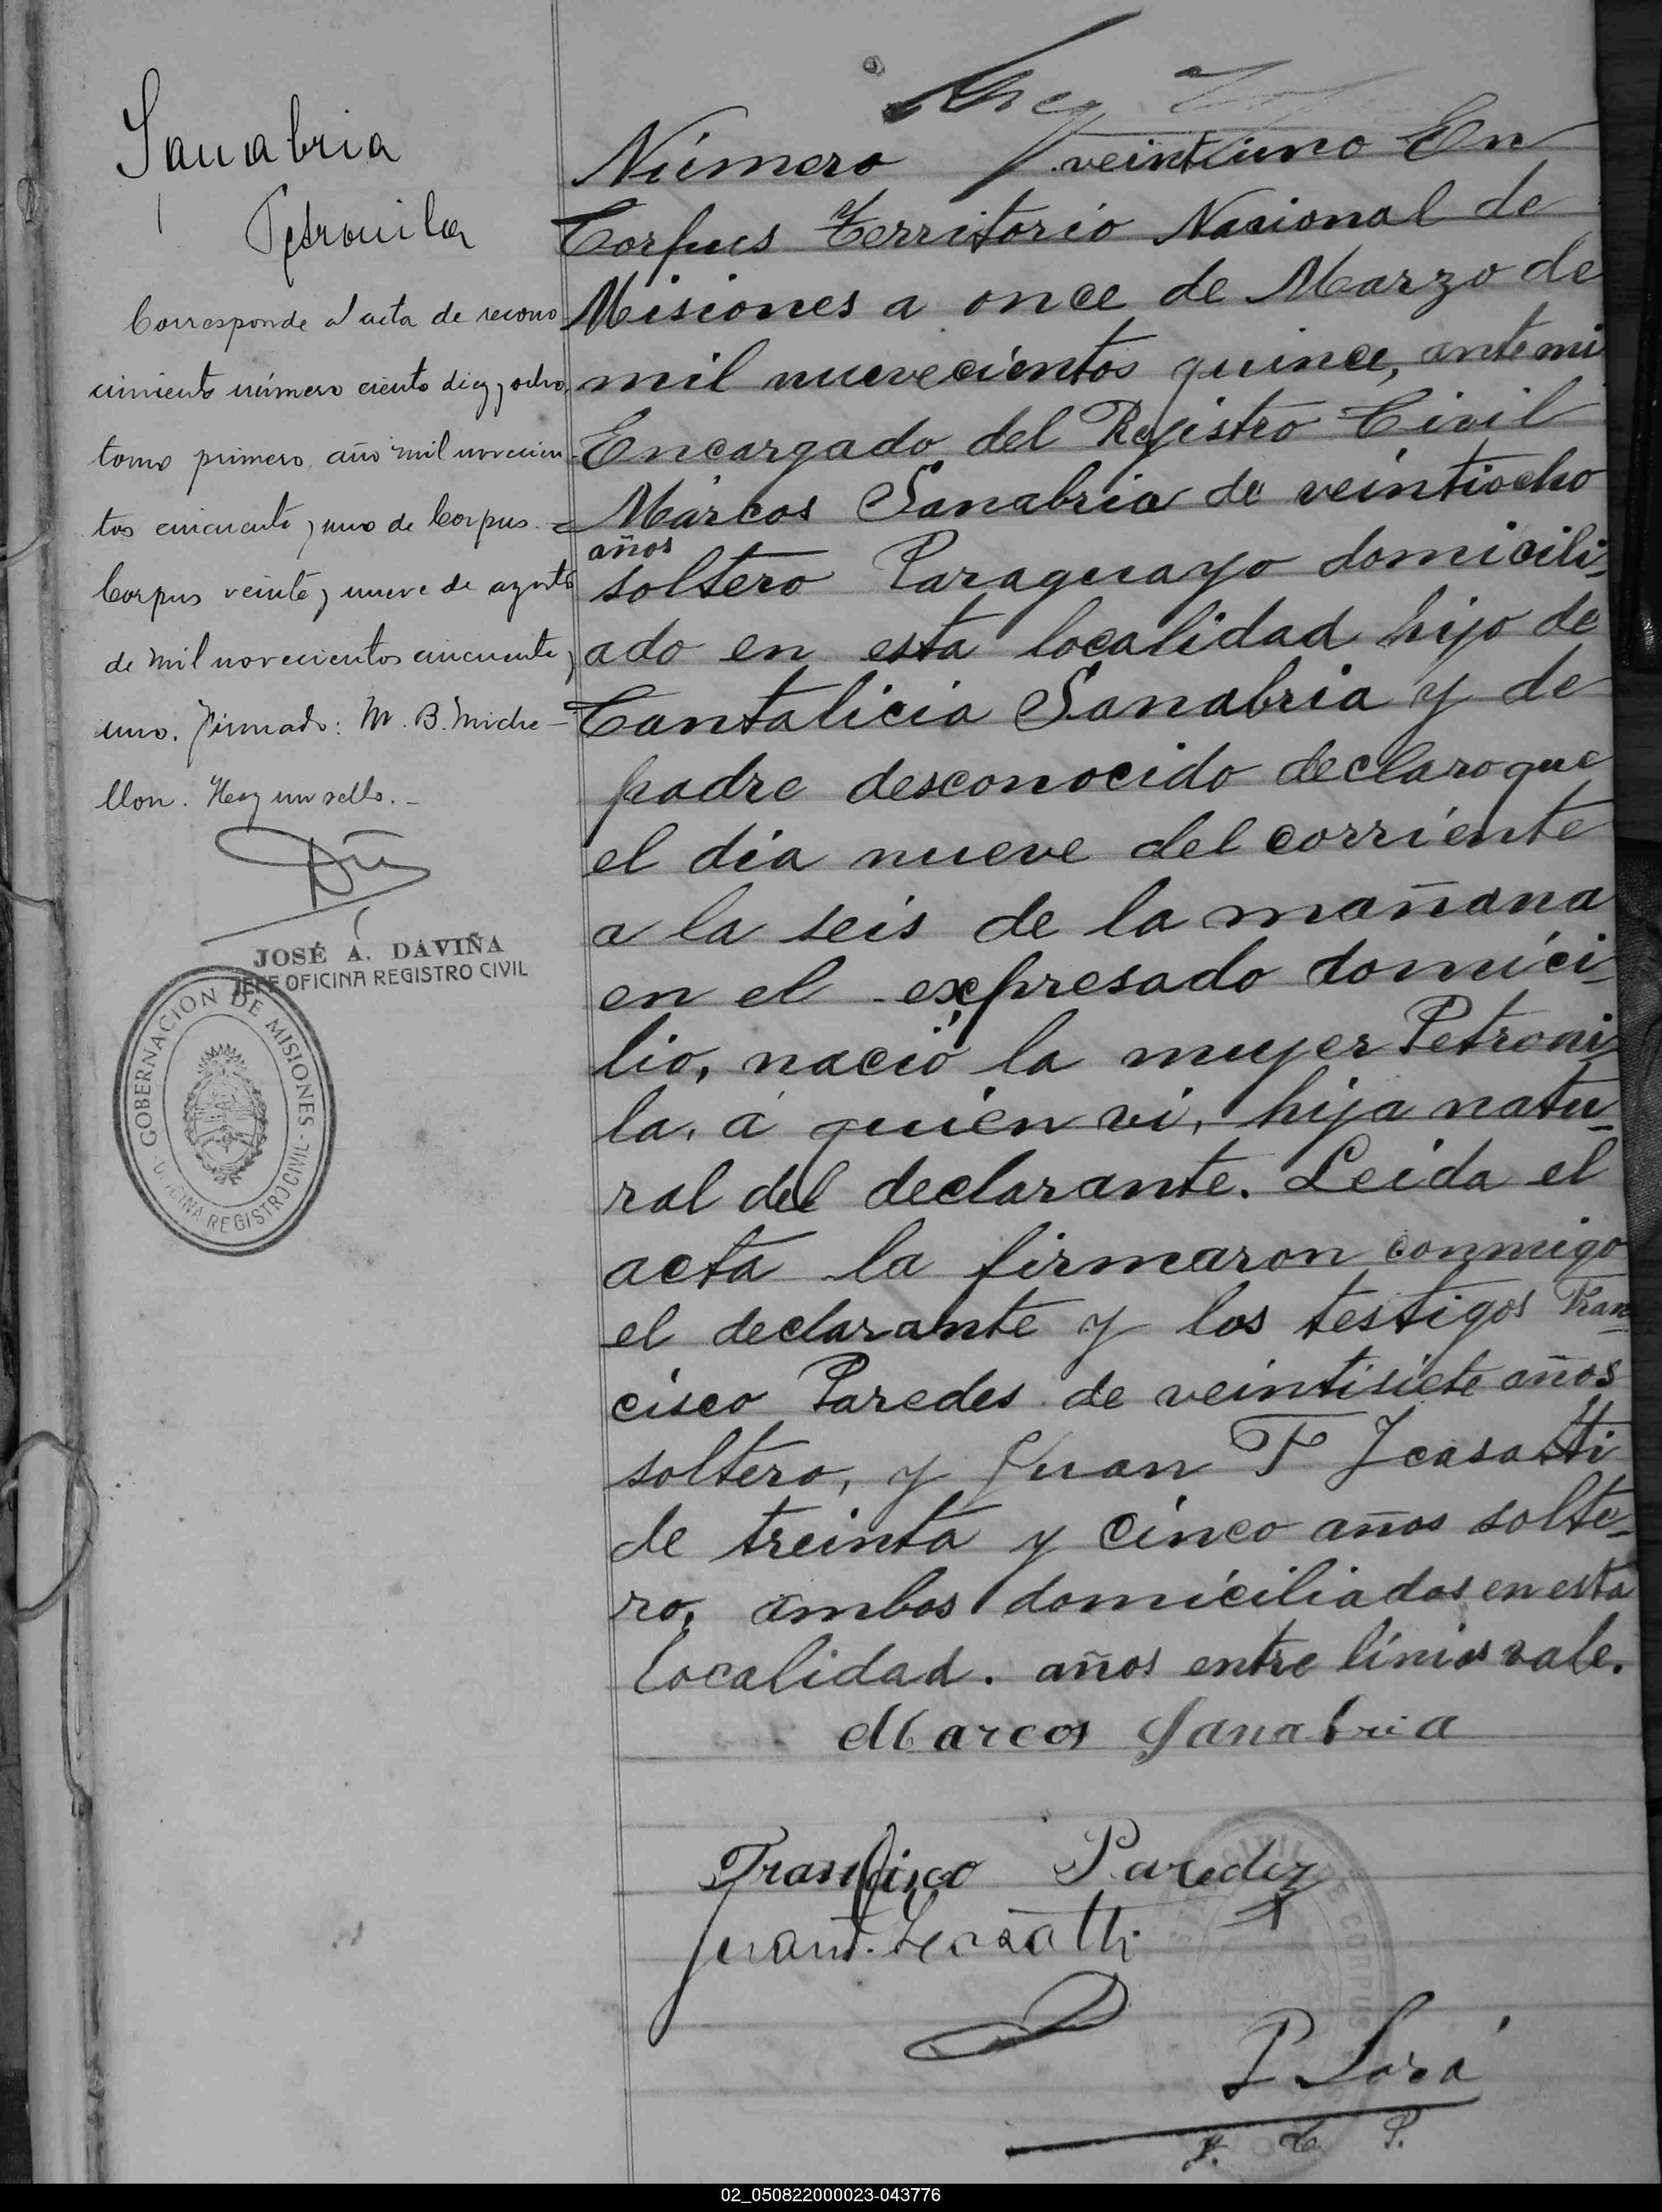 Sanabria
Petronila
Corresponde al acta de recono
cimiento número ciento diez y ocho,
tomo primero, año mil novecien-
tos cincuenta y uno de Corpus. =
Corpus veinte y nueve de agosto
de mil novecientos cincuenta y
uno. Firmado: M. B. Miche-
llon. Hay un sello. -
JOSÉ A. DAVIÑA
JEFE OFICINA REGISTRO CIVIL
GOBERNACION DE MISIONES - OFICINA REGISTRO CIVIL -
Número veintiuno En
Corpus Territorio Nacional de
Misiones a once de Marzo de
mil nuevecientos quince, ante mi
Encargado del Registro Civil
Márcos Sanabria de veintiocho
años
soltero Paraguayo domicili-
ado en esta localidad hijo de
Cantalicia Sanabria y de
padre desconocido declaro que
el dia nueve del corriente
a la seis de la mañana
en el expresado domici-
lio, nació la mujer Petroni-
la, á quien vi, hija natu-
ral del declarante. Leida el
acta la firmaron conmigo
el declarante y los testigos Fran-
cisco Paredes de veintisiete años
soltero, y Juan F Icasatti
de treinta y cinco años solte-
ro, ambos domiciliados en esta
localidad. años entre línias vale.
Marcos Sanabria
Francisco Paredez
Juan F. Icasatti
CIVIL DE CORPUS
P. Sosa
J. de P.
02_050822000023-043776